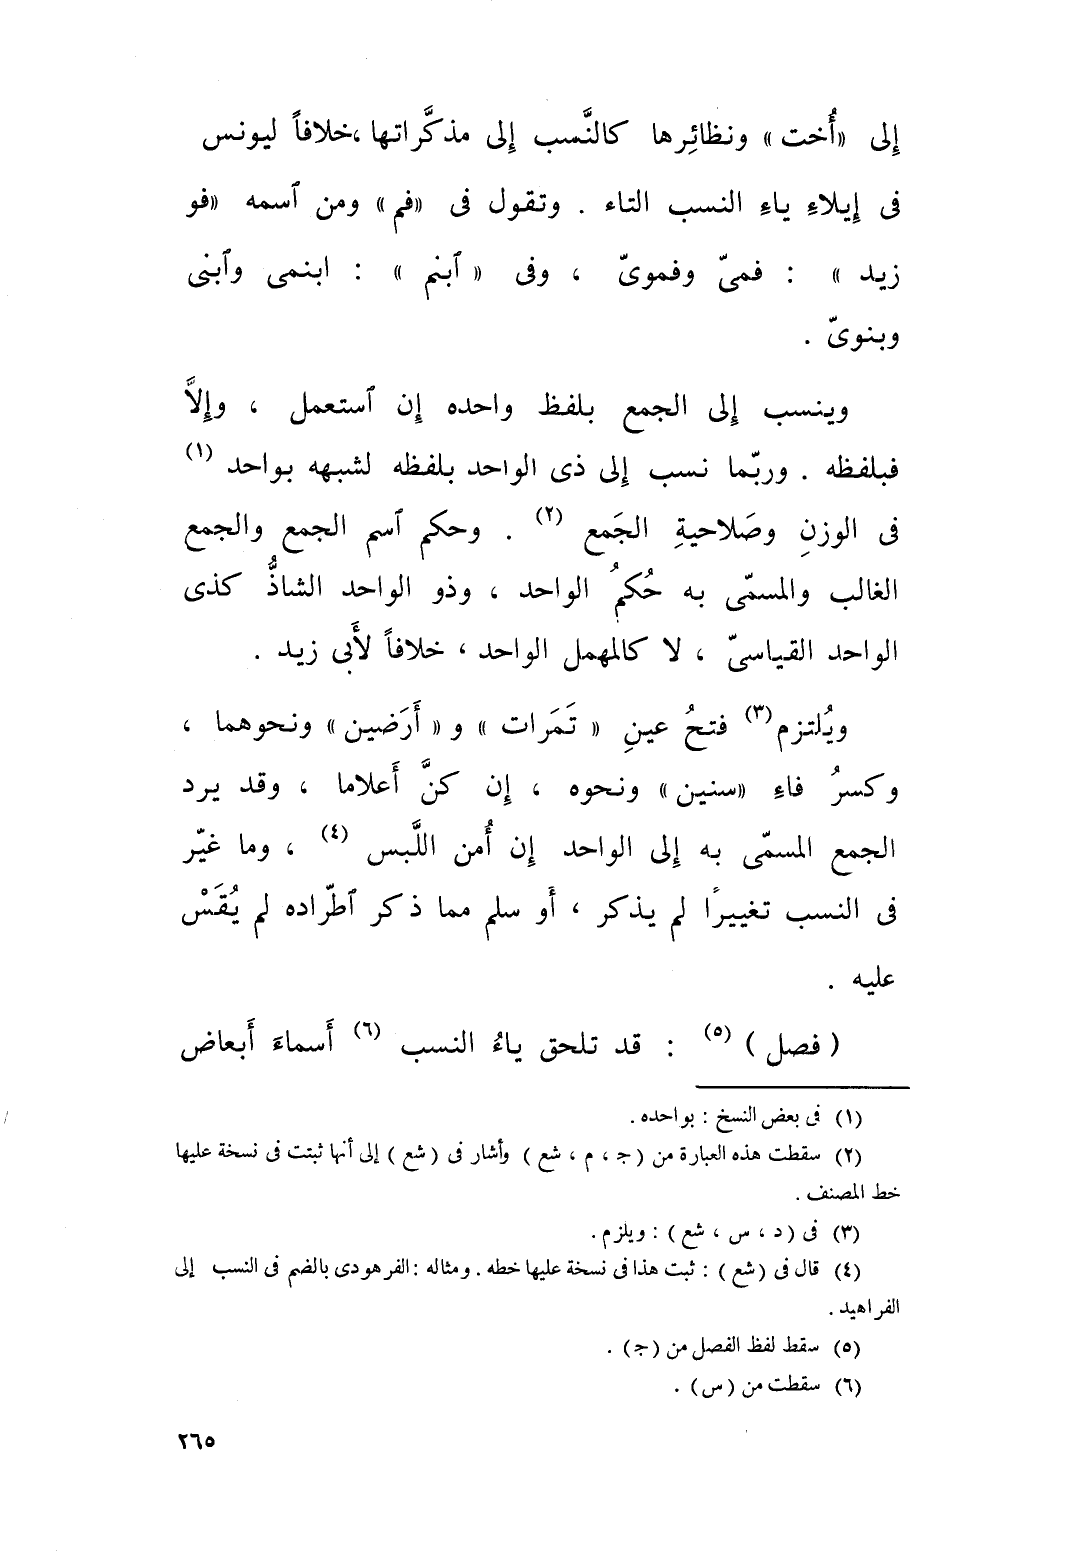 إِلى «أُخت» ونظائِرها كالنَّسب إِلى مذكَّراتها ،خلافاً ليونس
فى إِيلاءِ ياءِ النسب التاء . وتقول فى «فم» ومن ٱسمه «فو
زيد» : فمىّ وفموىّ ، وفى «ٱبنم» : ابنمى وٱبنى
وبنوىّ .
وينسب إِلى الجمع بلفظ واحده إِن ٱستعمل ، وإِلاَّ
فبلفظه . وربّما نسب إِلى ذى الواحد بلفظه لشبهه بواحد (١)
فى الوزنِ وصَلاحيةِ الجَمع (٢) . وحكم ٱسم الجمع والجمع
الغالب والمسمّى به حُكمُ الواحد ، وذو الواحد الشاذُّ كذى
الواحد القياسىّ ، لا كالمهمل الواحد ، خلافاً لأَبى زيد .
ويُلتزم(٣) فتحُ عينِ «تَمَرات» و «أَرَضين» ونحوهما ،
وكسرُ فاءِ «سنين» ونحوه ، إِن كنَّ أَعلاما ، وقد يرد
الجمع المسمّى به إِلى الواحد إِن أُمن اللَّبس (٤) ، وما غيّر
فى النسب تغييرًا لم يذكر ، أَو سلم مما ذكر ٱطّراده لم يُقَسْ
عليه .
( فصل ) (٥) : قد تلحق ياءُ النسب (٦) أَسماءَ أَبعاض
(١) فى بعض النسخ : بواحده .
(٢) سقطت هذه العبارة من ( جـ ، م ، شع ) وأشار فى ( شع ) إلى أنها ثبتت فى نسخة عليها
خط المصنف .
(٣) فى ( د ، س ، شع ) : ويلزم .
(٤) قال فى ( شع ) : ثبت هذا فى نسخة عليها خطه . ومثاله : الفرهودى بالضم فى النسب إلى
الفراهيد .
(٥) سقط لفظ الفصل من (جـ) .
(٦) سقطت من (س) .
٢٦٥